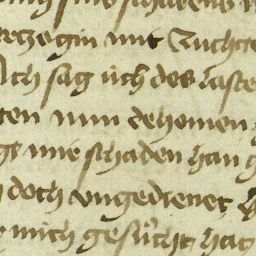 schadens
herczegin mit Zuchte
Ich sag üch des laste
ten num dehomen
gt mie schaden han g
doch vngedienet
mich gesücht hat